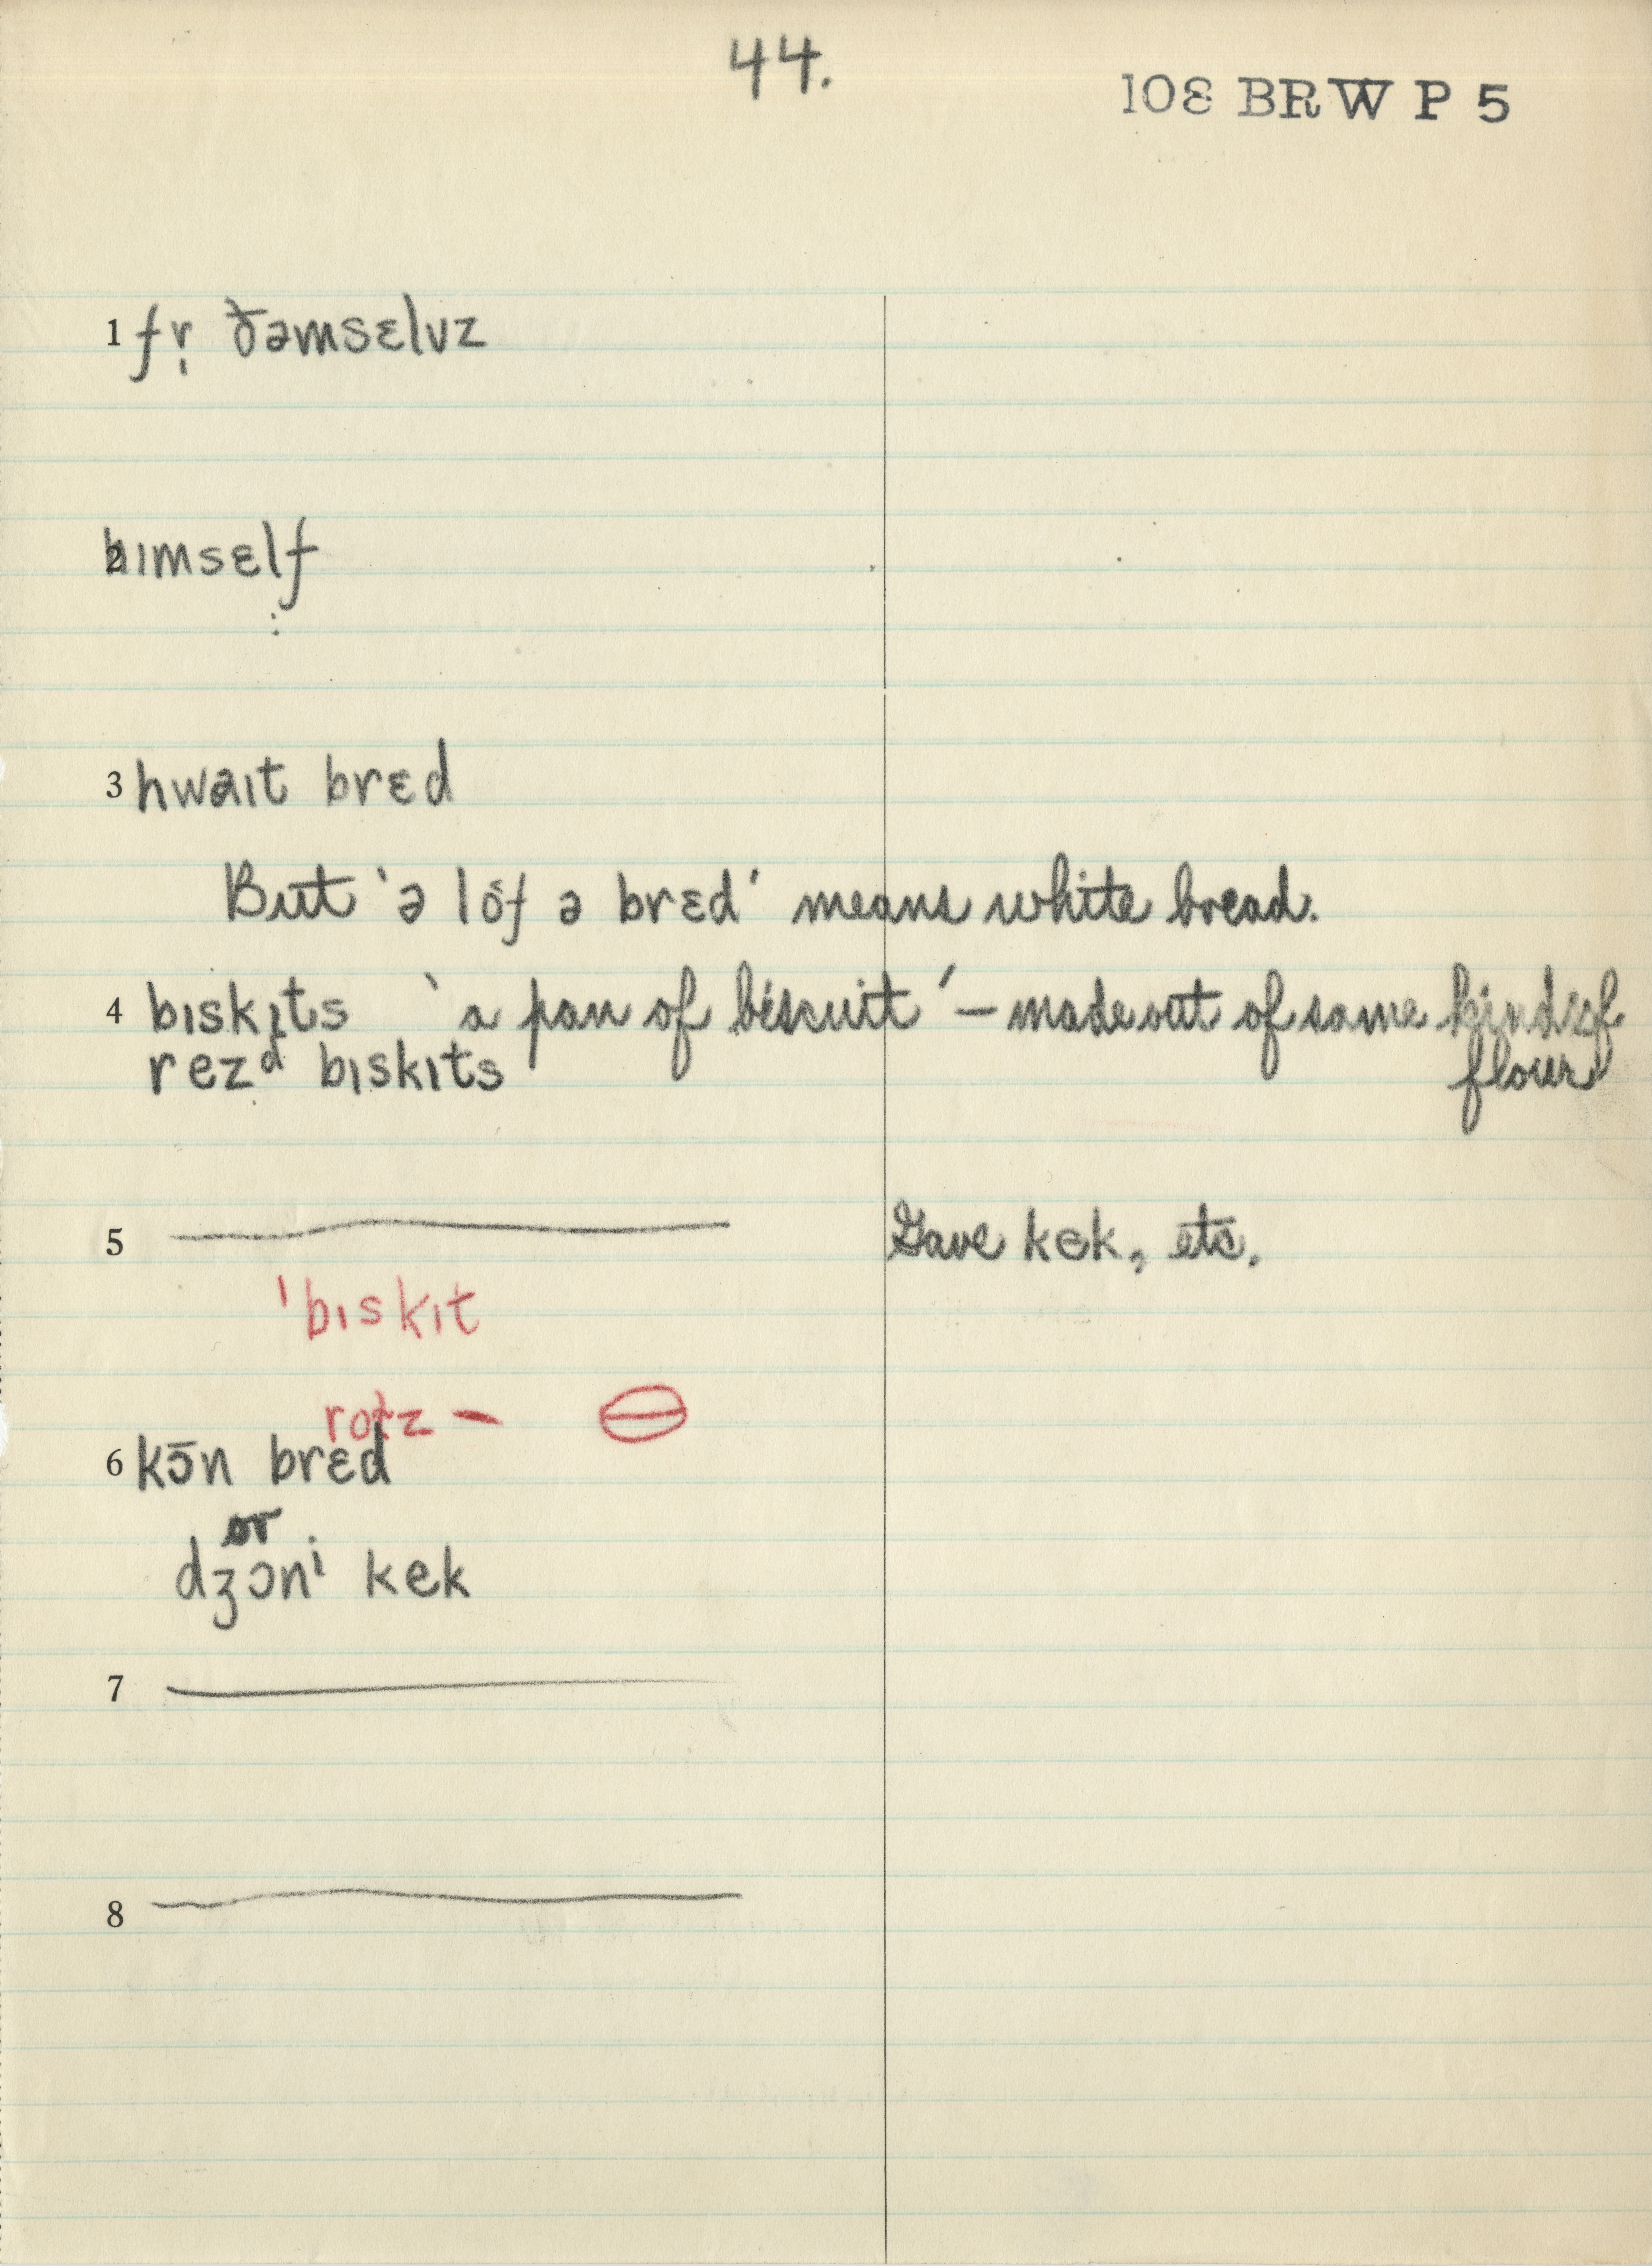 44.
108 BRW P 5
1 fr̩ ðəmsɛlvz
2 hɪmsɛlf
3 hwaɪt brɛd
But 'ə lof ə brɛd' means white bread.
4 bɪskɪts 'a pan of biscuit' – made out of same kind of
flour
rezᵈ bɪskɪts
5 Gave kek, etc.
ˈbɪskɪt
rotz –
6 kɔ̄n brɛd
or
dʒɔnⁱ kek
7
8